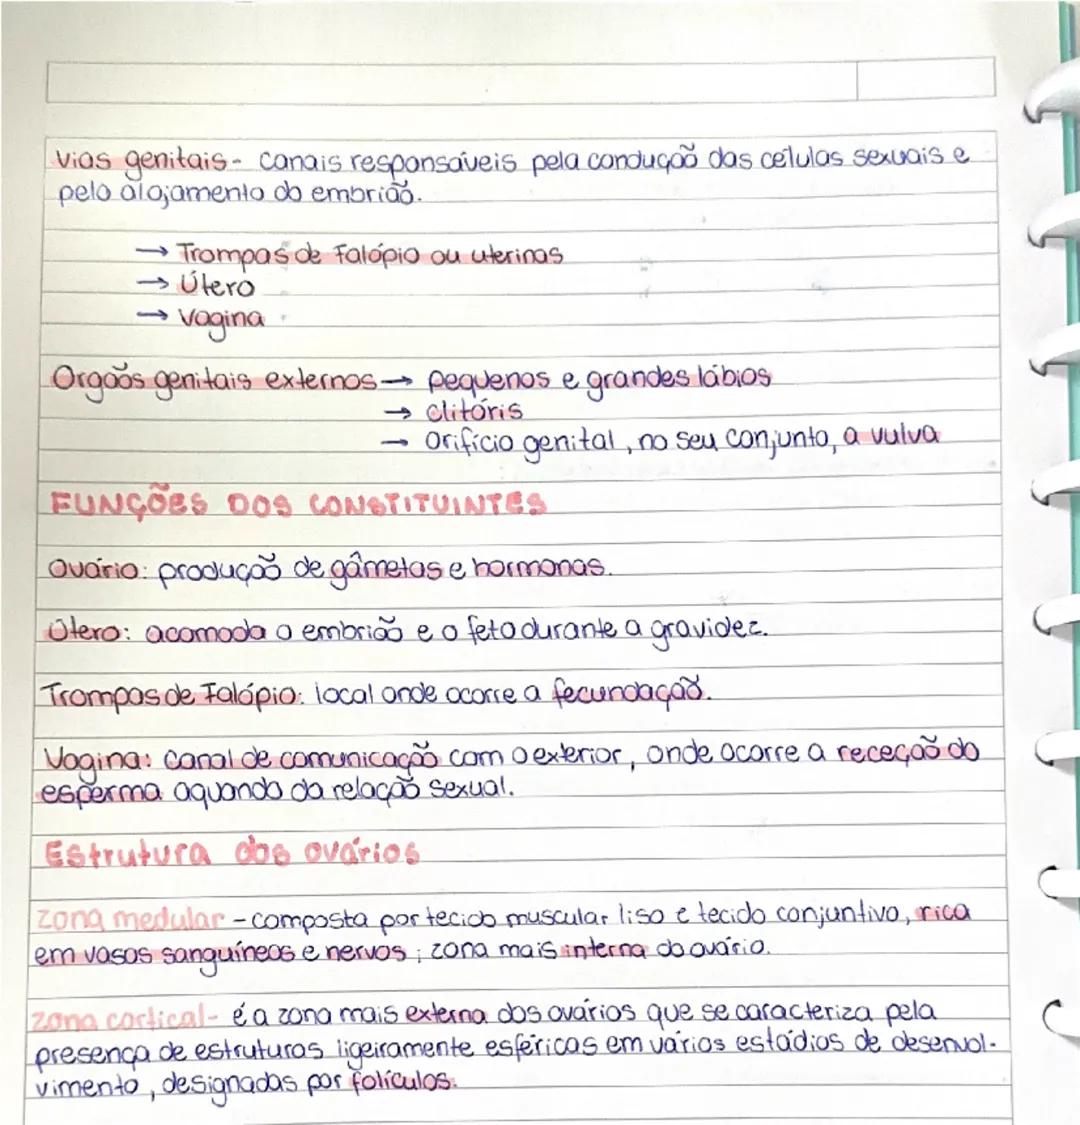 vias genitais - canais responsáveis pela condução das células sexuais e
pelo alojamento do embrião.
→ Trompas de Falópio ou uterinas
→ Útero
→ vagina
Orgãos genitais externos → pequenos e grandes lábios
→ clitóris
→ orifício genital, no seu conjunto, a vulva
FUNÇÕES DOS CONSTITUINTES
Ovário: produção de gâmetas e hormonas.
Útero: acomoda o embrião e o feto durante a gravidez.
Trompas de Falópio: local onde ocorre a fecundação.
Vagina: canal de comunicação com o exterior, onde ocorre a receção do
esperma aquando da relação sexual.
Estrutura dos ovários
zona medular - composta por tecido muscular liso e tecido conjuntivo, rica
em vasos sanguíneos e nervos; zona mais interna do ovário.
zona cortical - é a zona mais externa dos ovários que se caracteriza pela
presença de estruturas ligeiramente esféricas em vários estádios de desenvol-
vimento, designadas por folículos.